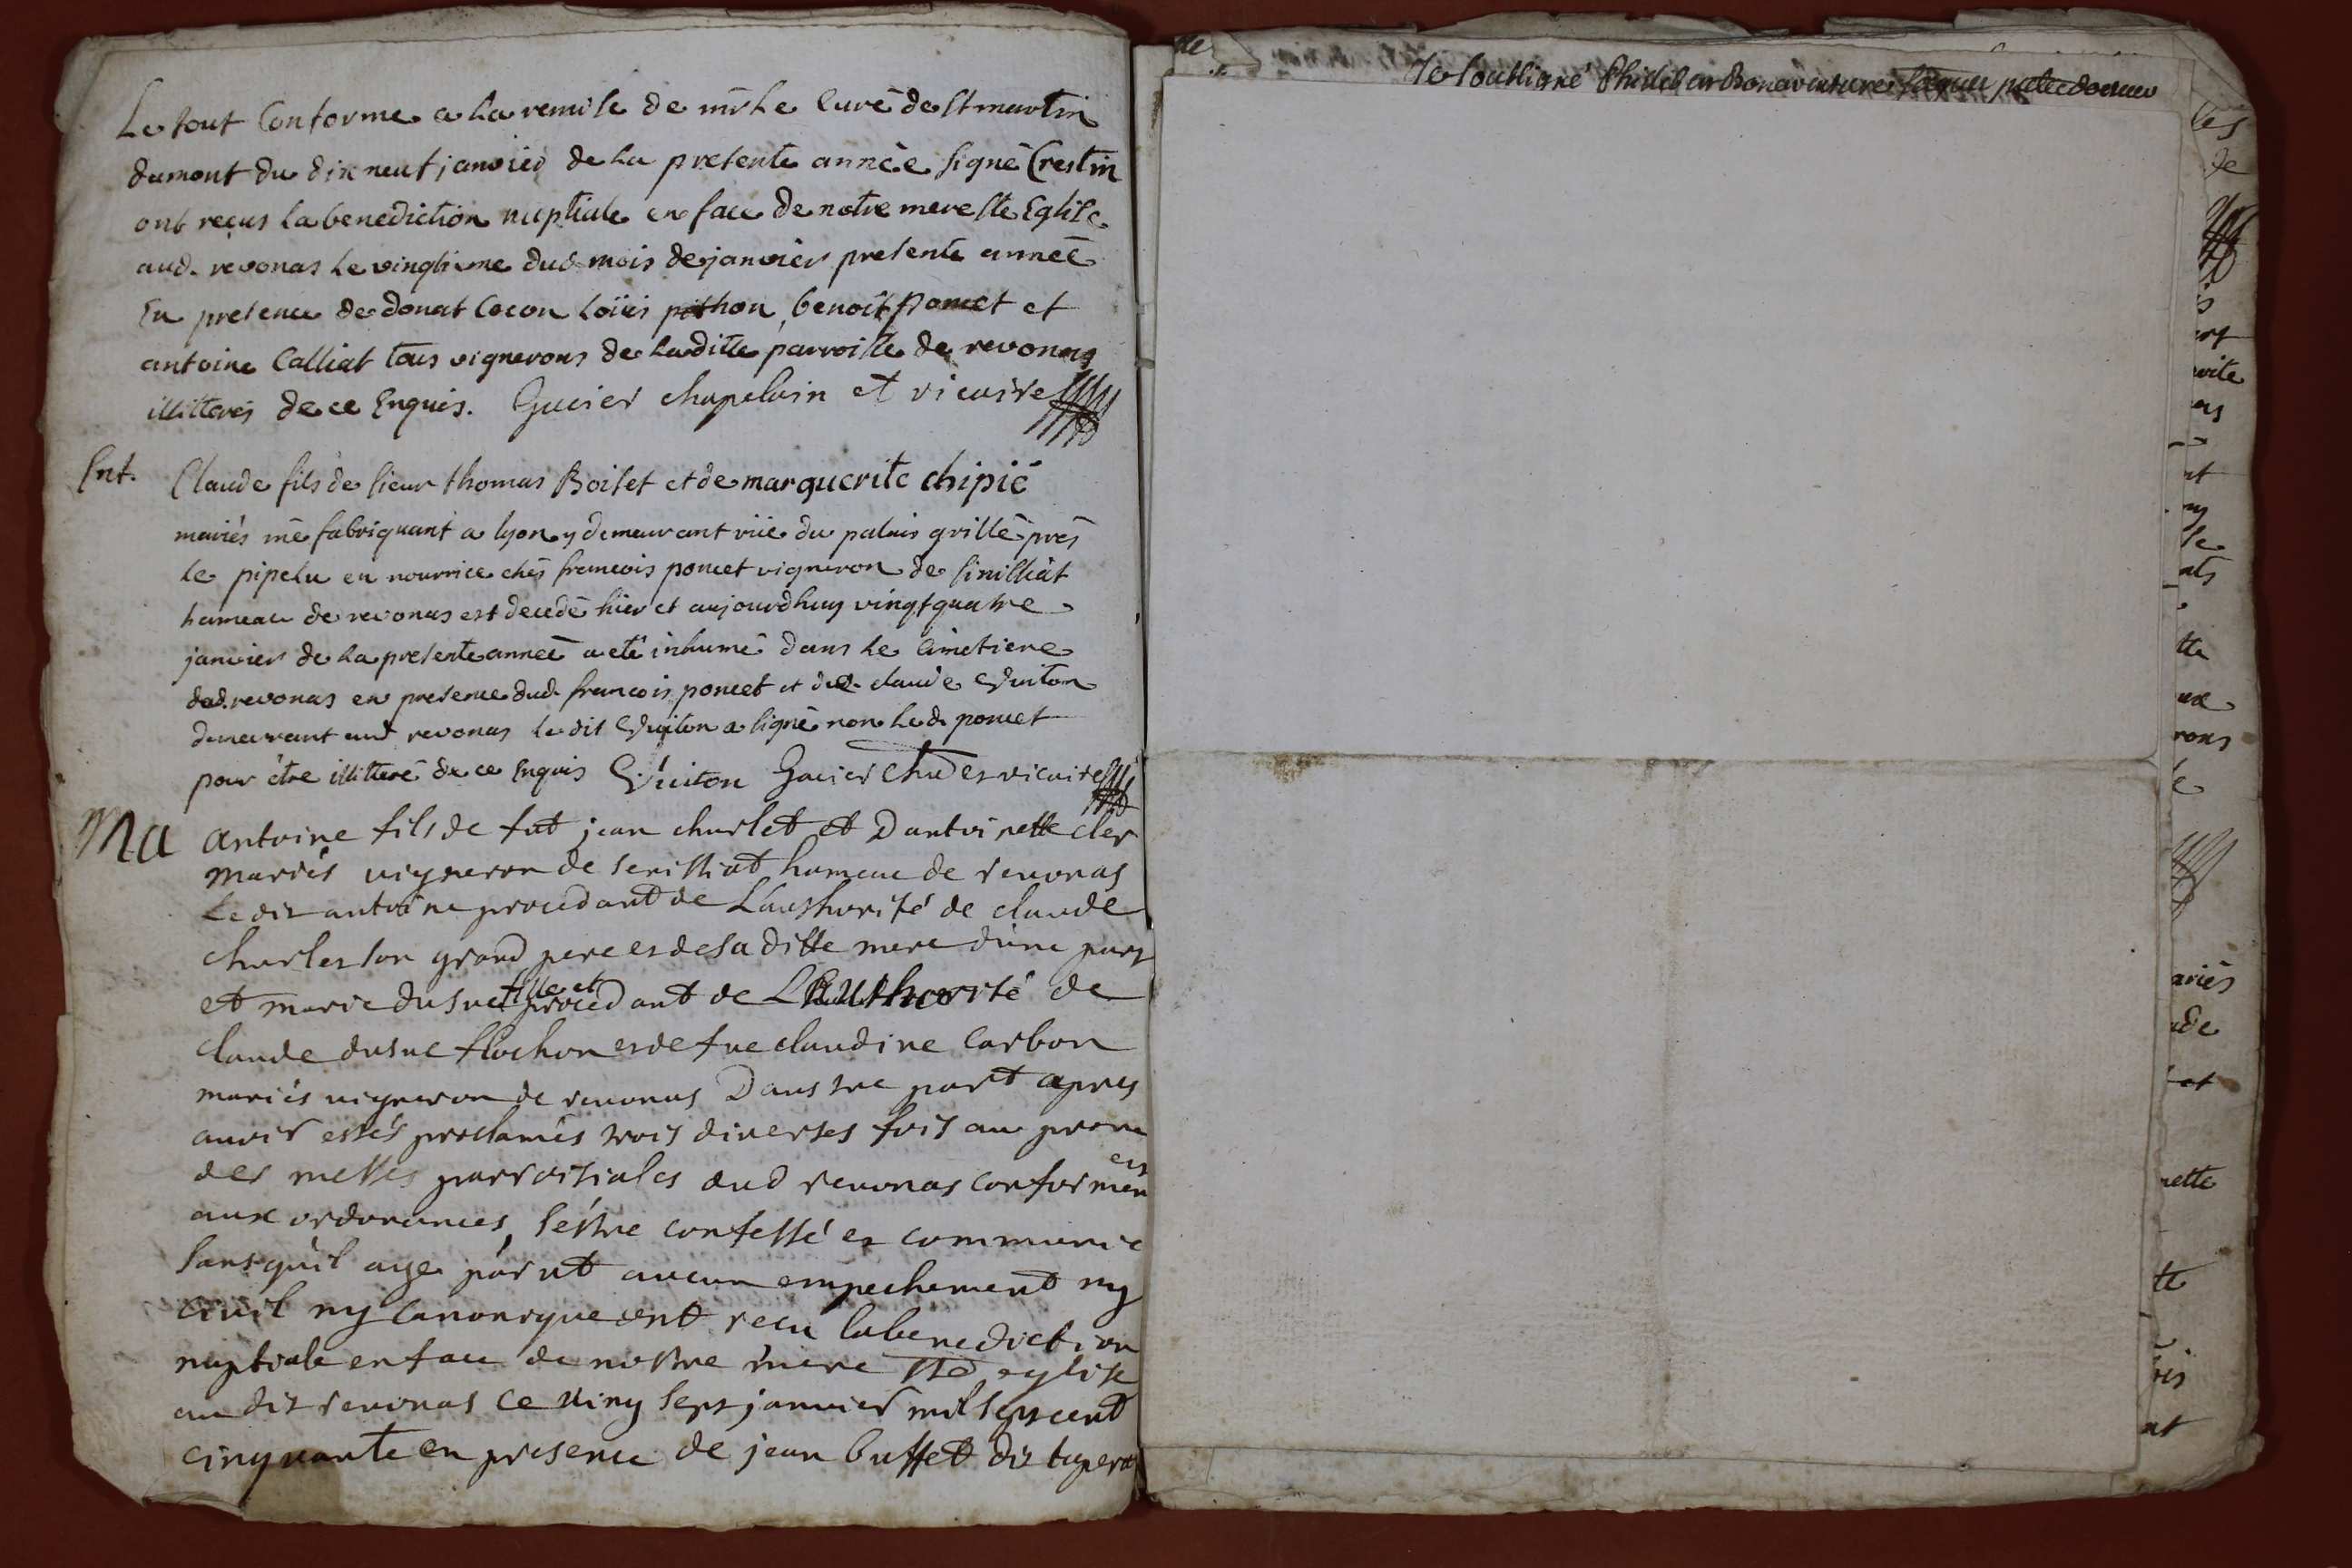 Le tout Conforme a la remise de mr le Curé de st martin
dumont du dix neuf janvier de la presente année signé Crestin
ont reçus la benediction nuptiale en face de notre mere ste Eglise
aud. revonas le vingtieme dud. mois de janvier presente année
En presence de donat Cocon loüis pithon, benoit poncet et
antoine Calliat tous vignerons de laditte parroisse de revonas
illitterés de ce Enquis. Gacier chapelain et vicaire
Ent. Claude fils de sieur thomas Boiset et de marguerite chipié
mariés me fabriquant a lyon y demeurant rüe du palais grillé près
le pipelu en nourrice chés francois poncet vigneron de sinilliat
hameau de revonas est decedé hier et aujourdhuy vingt quatre
janvier de la presente année a eté inhumé dans le Cimetiere
dud. revonas en presence dud. francois poncet et de claude Guiton
demeurant aud revonas le dit Guiton a signé non led. poncet
pour être illitteré de ce Enquis Guiton Gacier et vicaire
Ma antoine fils de fut jean charlet et Dantoinette cler
mariés vigneron de senilliat hameau de revonas
Le dit antoine procedant de Lauthorité de claude
charles son grand pere et de sa ditte mere dune part
et marie dusuc fille et procedant de Lauthorité de
claude dusuc flochon et de fue claudine Carbon
mariés vigneron de revonas Dautre part apres
auoir estés proclamés trois diverses fois au prone
des messes parroisiales dud revonas conformem ent
aux ordonances, sestre confessé et communié
sans quil aye parut aucun empechement ny
Ciuil ny Canonique ont recu la benediction
nuptiale en face de nostre mere ste eglise
au dit revonas ce ving sept janvier mil sept cent
cinquante en presence de jean buffet dit
Je soubsigné Philibert Bonaventure